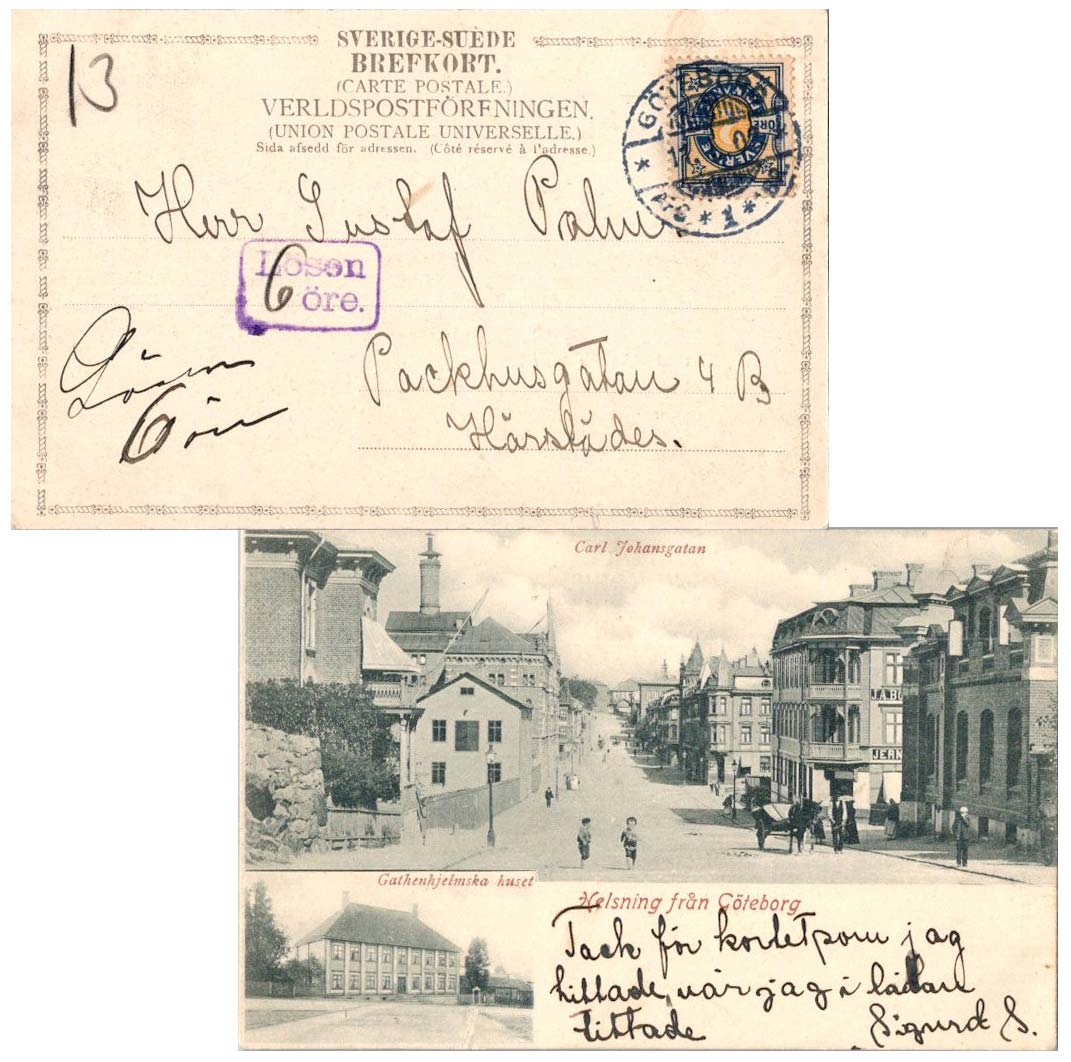 13
SVERIGE-SUÈDE
BREFKORT.
(CARTE POSTALE.)
VERLDSPOSTFÖRENINGEN.
(UNION POSTALE UNIVERSELLE.)
Sida afsedd för adressen. (Côté réservé à l'adresse.)
GÖTEBORG
SVERIGE
ÖRE
Herr Gustaf Palm
Lösen
6 öre.
Packhusgatan 4 B
Härstädes.
Lösen
6 öre
Carl Johansgatan
J.A.BO
JERN
Gathenhjelmska huset
Helsning från Göteborg
Tack för kortet som jag
hittade, när jag i lådan
tittade Sigurd S.